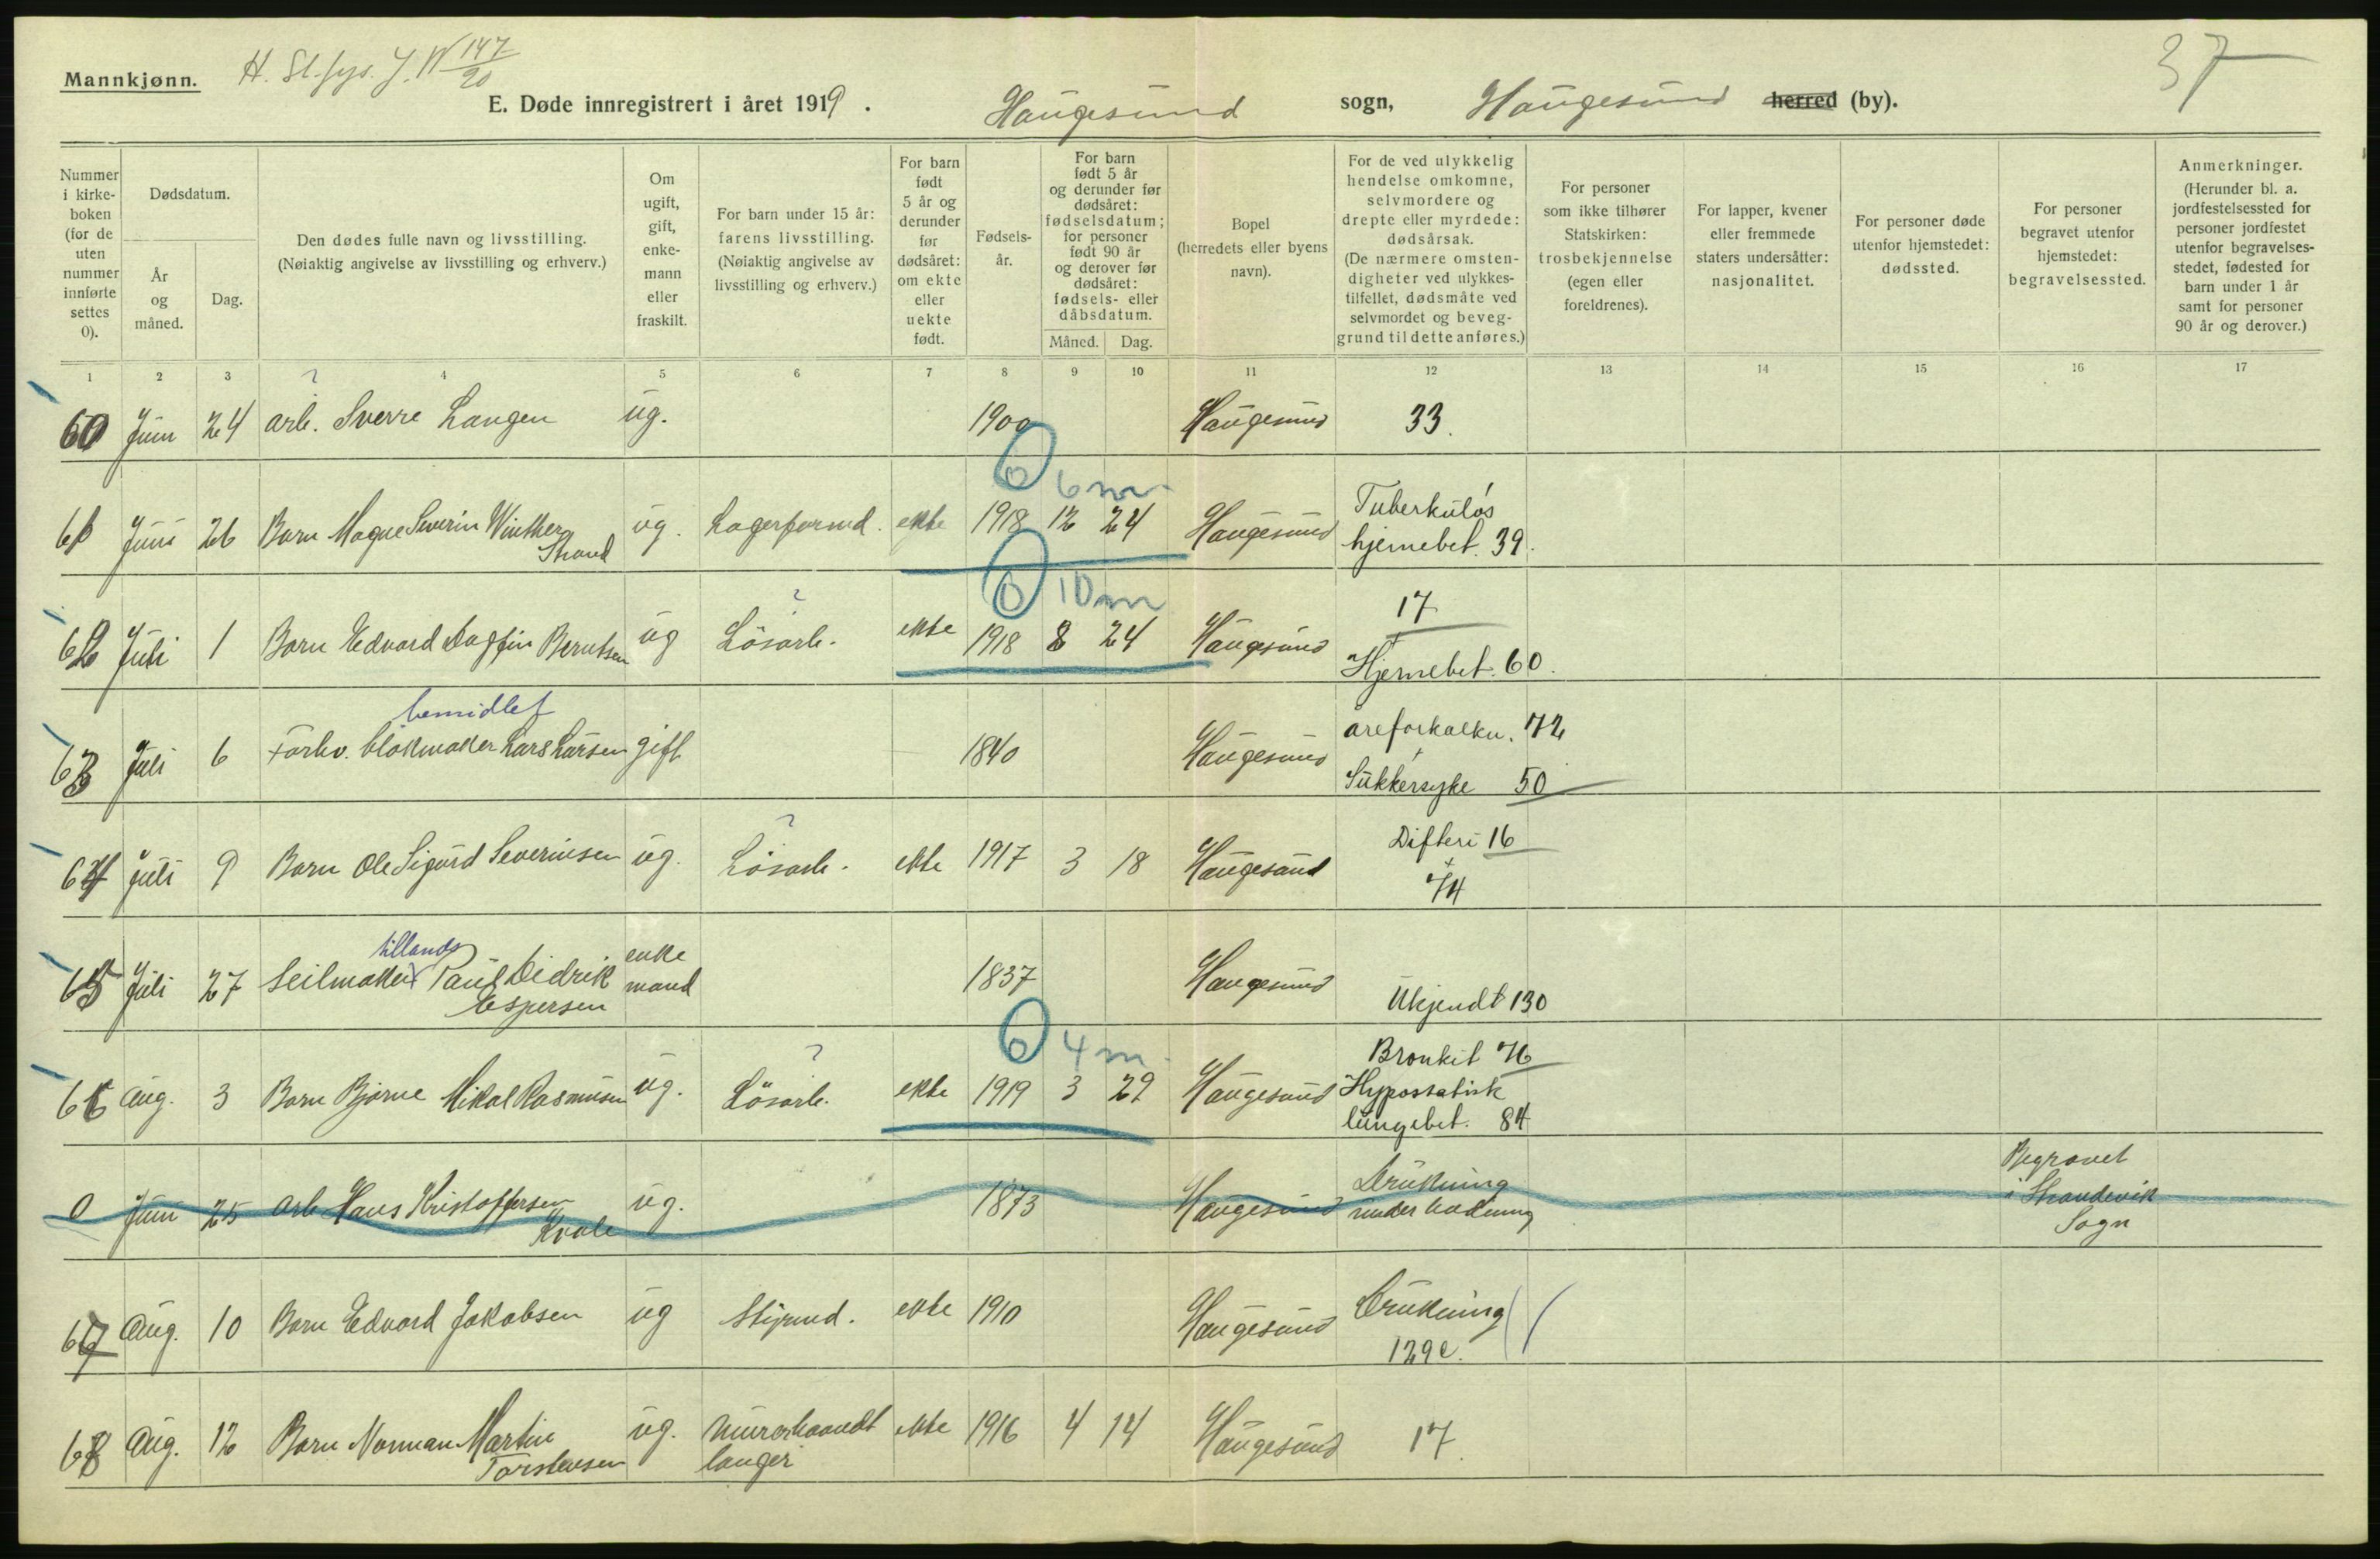 Mannkjønn.
H. St.fys. J. N 147/20
37
E. Døde innregistrert i året 1919. Haugesund sogn, Haugesund herred (by).
Nummer i kirkeboken (for de uten nummer innførte settes 0).
Dødsdatum.
År og måned.
Dag.
Den dødes fulle navn og livsstilling.
(Nøiaktig angivelse av livsstilling og erhverv.)
Om ugift, gift, enkemann eller fraskilt.
For barn under 15 år: farens livsstilling.
(Nøiaktig angivelse av livsstilling og erhverv.)
For barn født 5 år og derunder før dødsåret: om ekte eller uekte født.
Fødselsår.
For barn født 5 år og derunder før dødsåret: fødselsdatum; for personer født 90 år og derover før dødsåret: fødsels- eller dåbsdatum.
Måned.
Dag.
Bopel (herredets eller byens navn).
For de ved ulykkelig hendelse omkomne, selvmordere og drepte eller myrdede: dødsårsak.
(De nærmere omstendigheter ved ulykkestilfellet, dødsmåte ved selvmordet og beveggrund til dette anføres.)
For personer som ikke tilhører Statskirken: trosbekjennelse (egen eller foreldrenes).
For lapper, kvener eller fremmede staters undersåtter: nasjonalitet.
For personer døde utenfor hjemstedet: dødssted.
For personer begravet utenfor hjemstedet: begravelsessted.
Anmerkninger.
(Herunder bl. a. jordfestelsessted for personer jordfestet utenfor begravelsesstedet, fødested for barn under 1 år samt for personer 90 år og derover.)
1 2 3 4 5 6 7 8 9 10 11 12 13 14 15 16 17
?
60 Juni 24 arb. Sverre Langen ug. 1900 Haugesund 33.
0 6 m.
61 Juni 26 Barn Magne Severin Winther Strand ug. Lagerformd. ekte 1918 12 24 Haugesund Tuberkuløs hjernebet. 39.
0 10 m
?
62 Juli 1 Barn Edvard Dagfin Berntsen ug Lösarb. ekte 1918 8 24 Haugesund 17 + Hjernebet. 60.
bemidlet
63 Juli 6 Forhv. blokmaker Lars Larsen gift 1840 Haugesund åreforkalkn. 72 + Sukkersyke 50
?
64 Juli 9 Barn Ole Sigurd Severinsen ug. Lösarb. ekte 1917 3 18 Haugesund Difteri 16 + 74
tillands
65 Juli 27 Seilmaker Paul Didrik Espersen enkemand 1837 Haugesund Ukjendt 130
0 4 m.
?
66 Aug. 3 Barn Bjarne Mikal Rasmusen ug. Lösarb. ekte 1919 3 29 Haugesund Bronkit 76 Hypostatisk lungebet. 84
0 Juni 25 arb Hans Kristoffersen Kvale ug. 1873 Haugesund Drukning under badning Begravet i Strandevik Sogn
67 Aug. 10 Barn Edvard Jakobsen ug Styrmd. ekte 1910 Haugesund Drukning 129e.
68 Aug. 12 Barn Norman Martin Torstensen ug. Murerhaandtlanger ekte 1916 4 14 Haugesund 17.